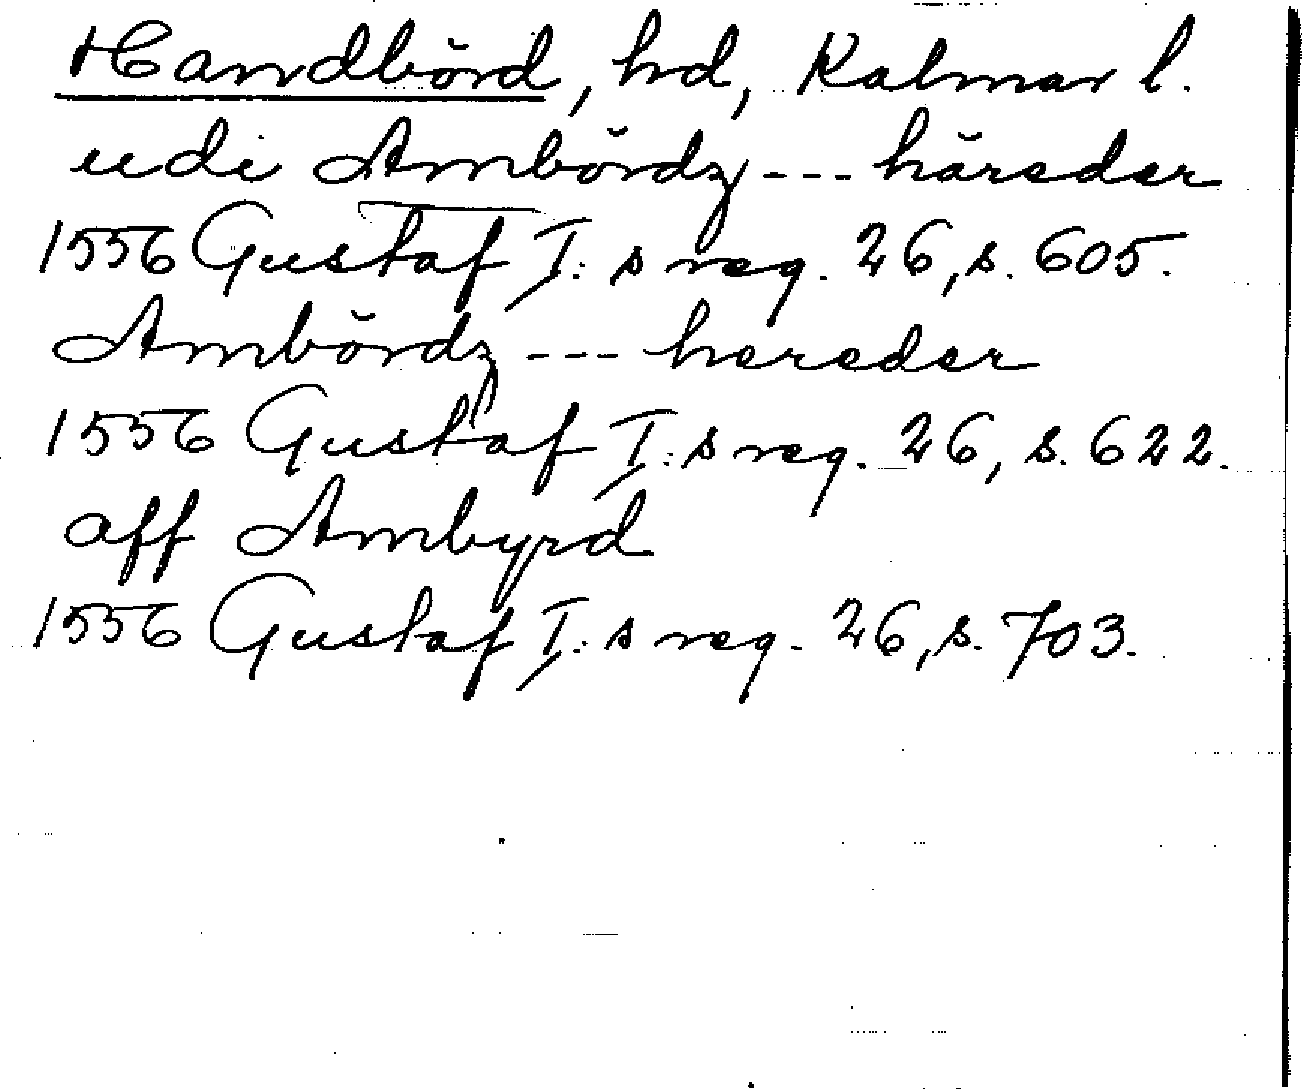 Handbörd, hd, Kalmar l.
udi Ambördz --- häreder
1556 Gustaf I:s reg. 26, s. 605.
Ambördz --- hereder
1556 Gustaf I:s reg. 26, s. 622.
aff Ambyrd
1556 Gustaf I:s reg. 26, s. 703.